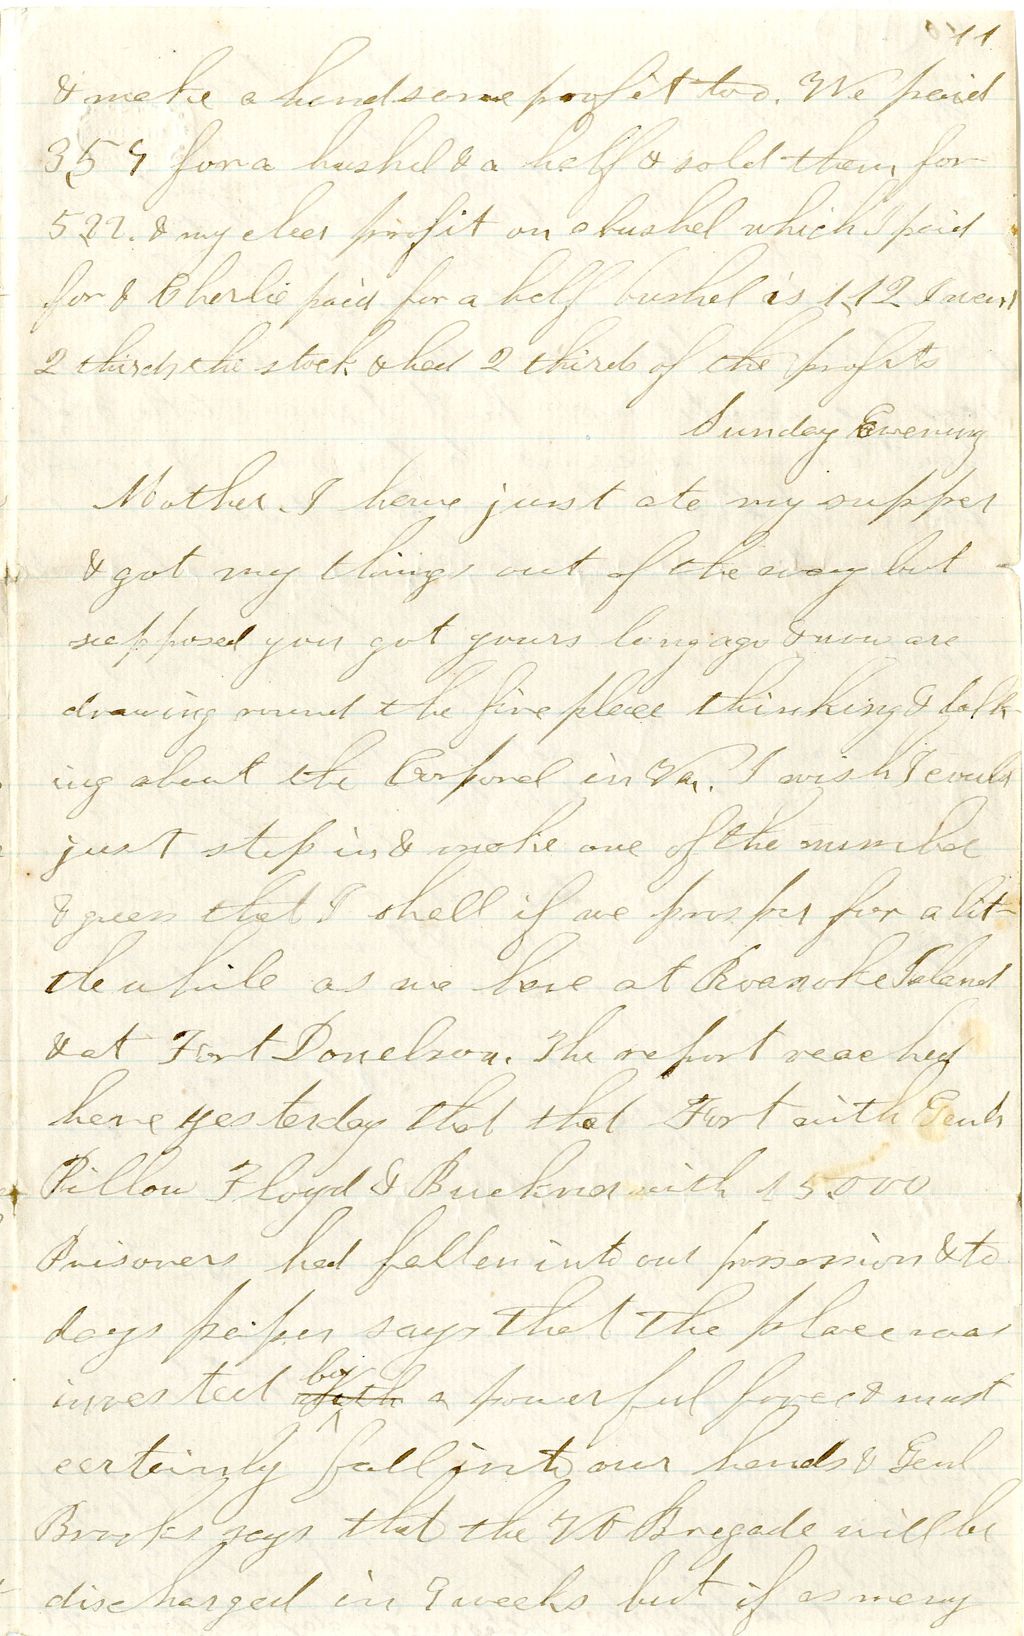 11
& make a handsome profit too. We paid
3,54 for a bushel & a half & sold them for
5,22. & my clear profit on a bushel which I paid
for & Charlie paid for a half bushel is 1,12 I
2 thirds the stock & had 2 thirds of the profits
Sunday Evening
Mother. I have just ate my supper
& got my things out of the way but
supposed you got yours long ago & now are
drawing round the fire place thinking & talk-
ing about the Corporel in Va. I wish I could
just step in & make one of the number
& guess that I shall if we prosper for a lit-
tle while as we have at Roanoke Island
& at Fort Donelson. The report reached
here yesterday that that Fort with Genls
Pillow Floyd & Buckner with 15,000
Prisoners had fallen into our possession & to
days paper says that the place was
invested by with a powerful force & must
certainly fall into our hands & Genl
Brooks says that the Vt Bregade will be
discharged in 9 weeks but if as many